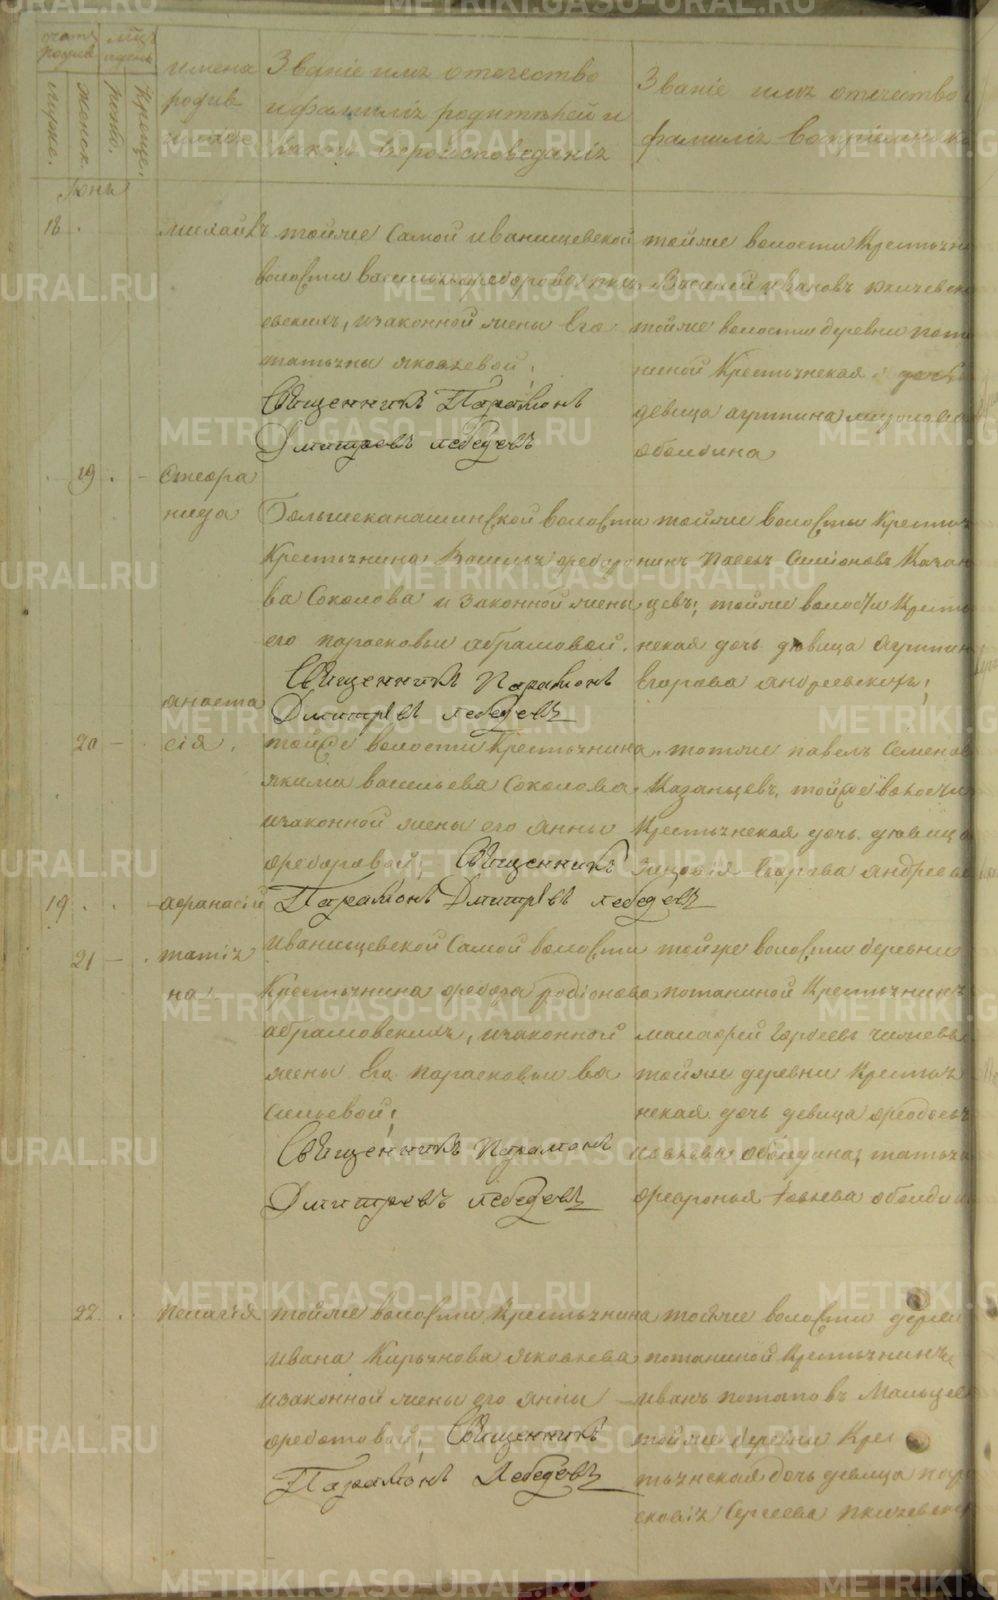 METRIKI.GASO-URAL.RU
счатъ родив
мцъ и день
имена
родив
шихся
Званіе имъ отечество
и фамилія родителей и
какой вероисповеданія
Званіе имъ отечество
фамилія восприемника
мужес.
женск.
рожд.
Крещ.
Іюнь
18
Михаилъ
тойже самой иванищевской
волости василья федорова
евскихъ, изаконной жены Его
татьяны яковлевой.
Священникъ Парамонъ
Дмитревъ лебедевъ
тойже волости Крестьян
Василий ивановъ
тойже волости деревни пота
ниной Крестьянская дочь
девица
оболдина
19
Стефа
нида
Большеканашинской волости
Крестьянина Василья федоро
ва Соколова и законной жены
его парасковьи абрамовой.
Священникъ Парамонъ
Дмитрівъ лебедевъ
тойже волости Крестья
нинъ Павелъ Симіоновъ Казан
цевъ, тойже волости Кресть
нская дочь девица
Егорова андреевскихъ,
20
анаста
сія.
тойже волости Крестьянина
якима васильева Соколова
изаконной жены его анны
федоровой, Священникъ
Парамонъ Дмитрівъ лебедевъ
тотже павелъ Семенов
Казанцевъ, тойже волости
Крестьянская дочь девица
Егорова андреев
19
афанасій
21
татія
на.
иванищевской Самой волости
Крестьянина федора родіонова
абрамовскихъ, изаконной
жены Его парасковьи Ва
сильевой,
Священникъ Парамонъ
Дмитревъ лебедевъ
тойже волости деревни
потаниной Крестьянинъ
тойже деревни Крестья
нская дочь девица
оболдина, татья
оболди
22.
Пелагія
тойже волости Крестьянина
ивана Кирьянова яковлева
изаконной жены его анны
федотовой, Священникъ
Парамонъ Лебедевъ
тойже волости дерев
потаниной Крестьянинъ
иванъ потаповъ Мальцев
тойже деревни Крес
тьянская дочь девица пара
сковія Сергеева